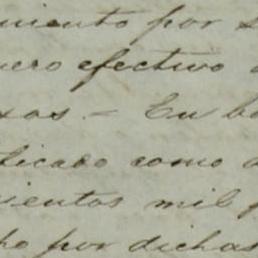 miento por s
ero efectivo
xas. - En b
licado como
cientos mil
ho por dichas